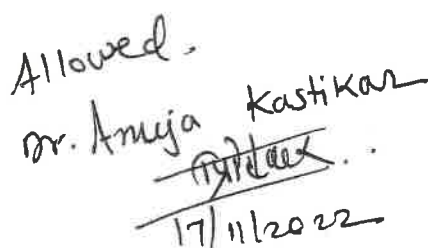 Allowed.
Dr. Anuja Kastikar
17/11/2022